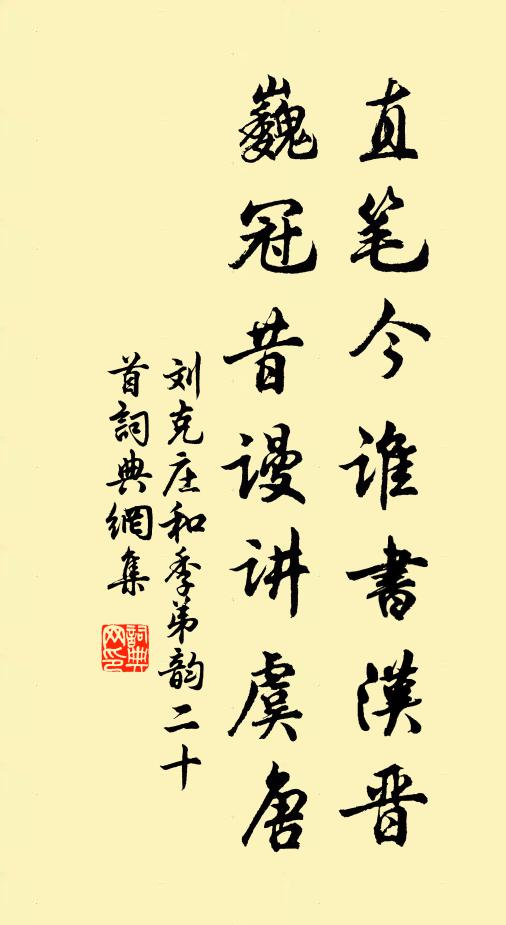 直笔今谁書漢晋
巍冠昔谩讲虞唐
刘克庄和季弟韵二十
首詞典網集
詞典網印